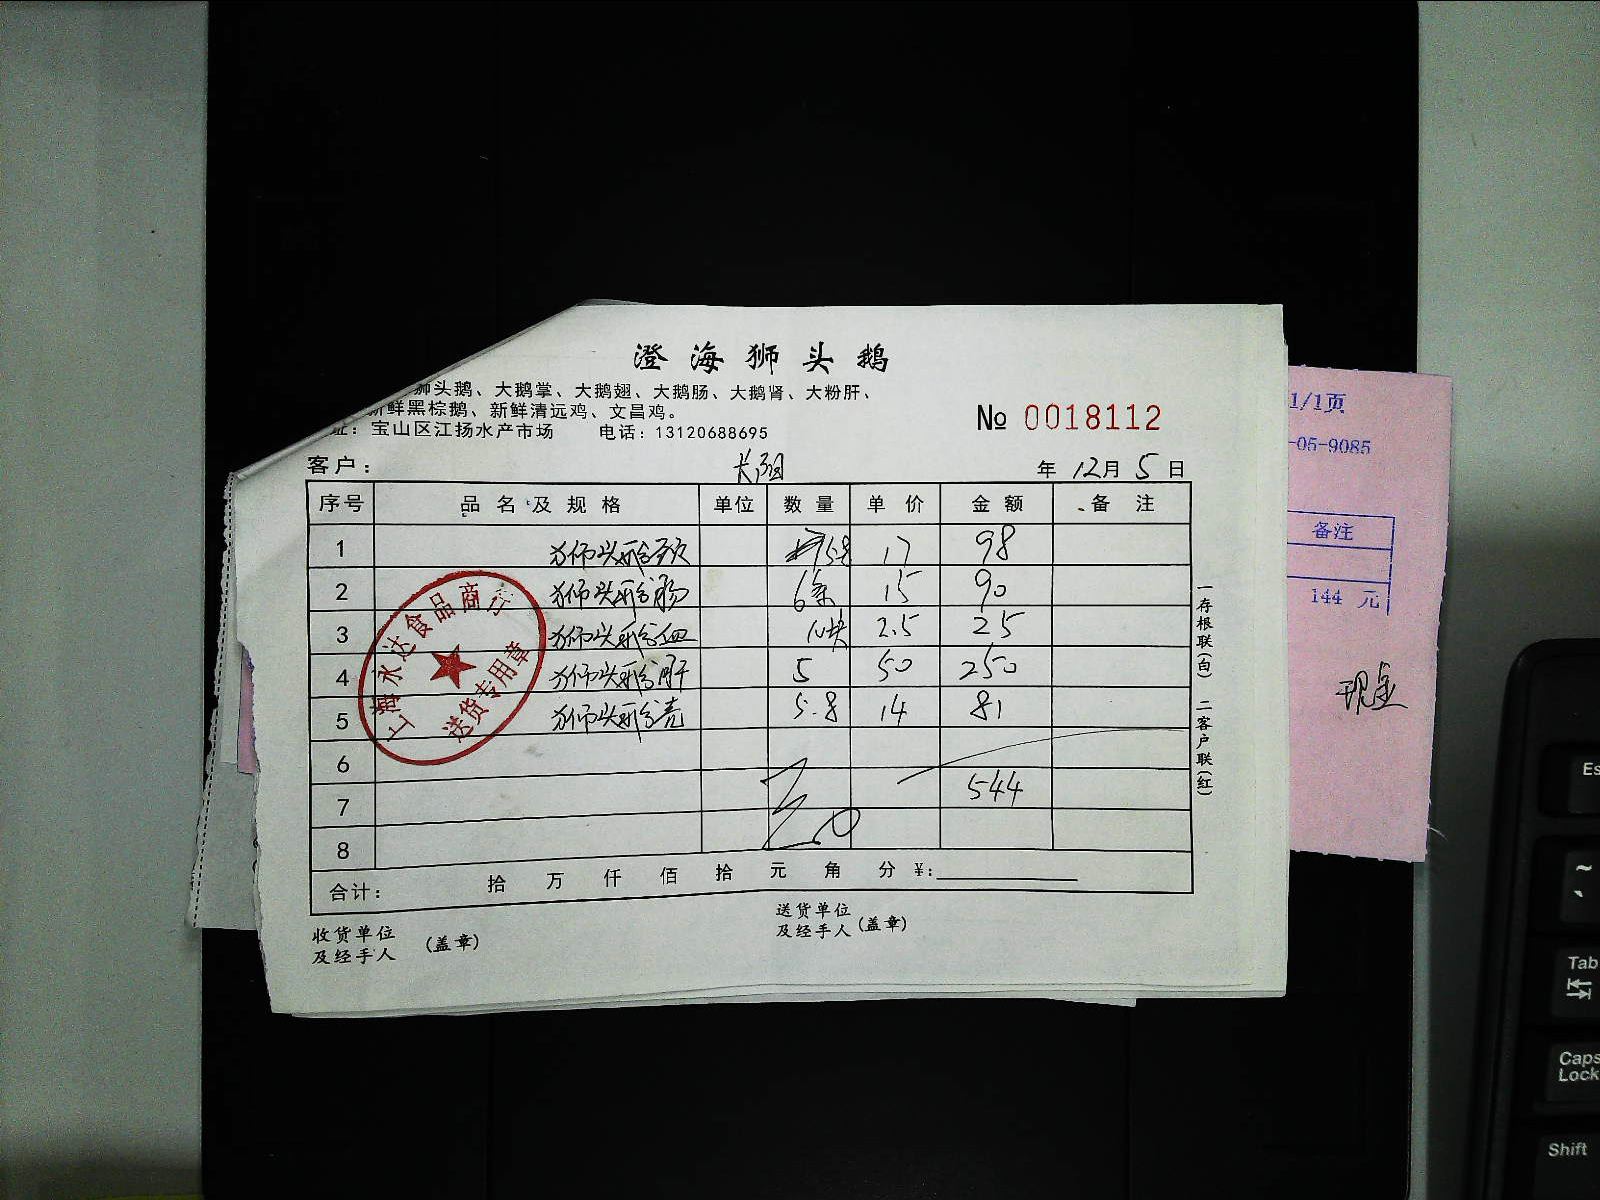 澄海狮头鹅
狮头鹅、大鹅掌、大鹅翅、大鹅肠、大鹅肾、大粉肝、
新鲜黑棕鹅、新鲜清远鸡、文昌鸡。
址：宝山区江扬水产市场 电话：13120688695
№ 0018112
客户： 长阳 年 12月 5 日
序号 品名及规格 单位 数量 单价 金额 备注
1 狮头鹅颈 5.8 17 98
2 狮头鹅肠 6条 15 90
3 狮头鹅血 10块 2.5 25
4 狮头鹅肝 5 50 250
5 狮头鹅壳 5.8 14 81
6
7 544
8
合计： 拾 万 仟 佰 拾 元 角 分 ¥:
收货单位
及经手人 (盖章)
送货单位
及经手人 (盖章)
一存根联(白) 二客户联(红)
上海永达食品商行
送货专用章
1/1页
-05-9085
备注
144 元
现金
Es
~
Tab
Caps
Lock
Shift